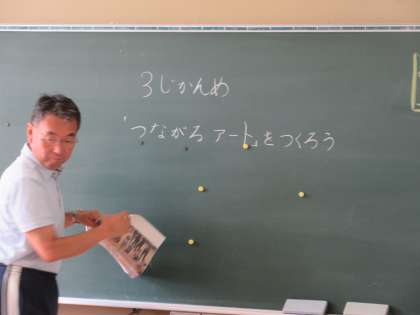 3じかんめ
「つながるアート」をつくろう